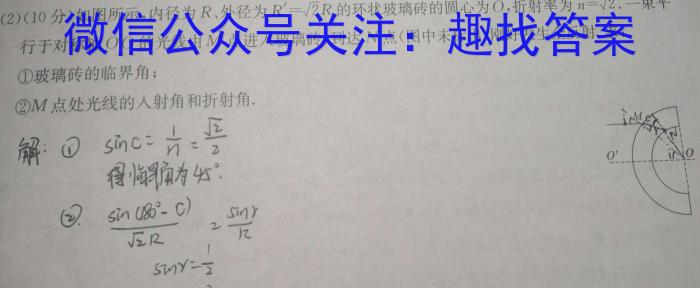 (2)(10分)如图所示,内径为R、外径为R′=√2R的环状玻璃砖的圆心为O,折射率为n=√2.一束平
微信公众号关注：趣找答案
行于对
①玻璃砖的临界角;
②M点处光线的入射角和折射角.
解: ① sinC = 1/n = √2/2
得临界角为45°.
②. sin(180°-C)/√2R = sinγ/R
sinγ = 1/2
M
O′ O